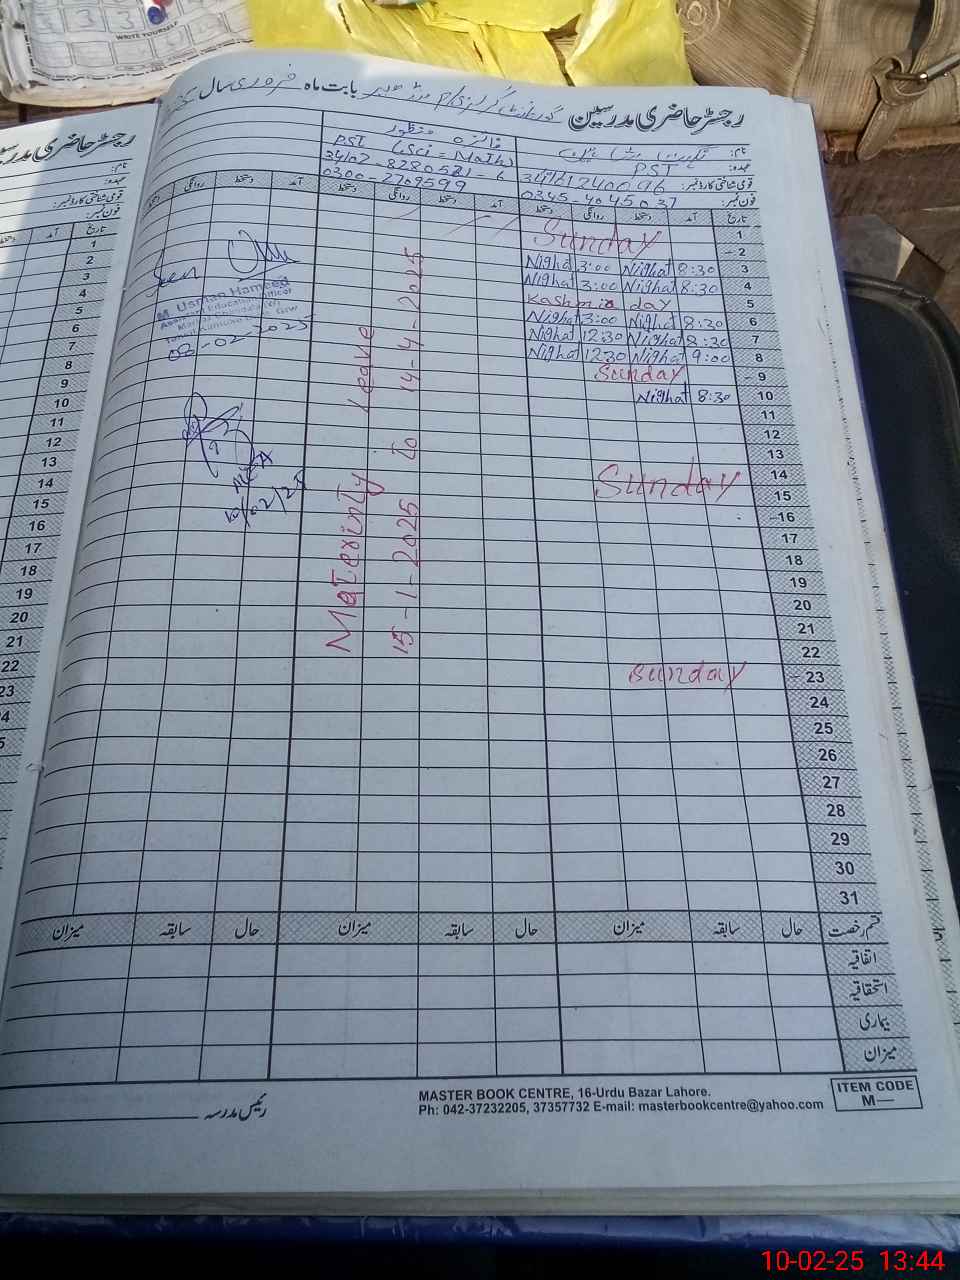 WRITE YOURSELF
رجسٹر حاضری مدرسین
بابت ماہ فروری سال
رجسٹر حاضری مدرسین
نام:
عہدہ: PST
قومی شناختی کارڈ نمبر:
فون نمبر: 0345-4045037
فائزہ منظور
PST (Sci = Math)
34102-8280581-6
0300-2709599
نام:
عہدہ:
قومی شناختی کارڈ نمبر:
فون نمبر:
تاریخ آمد دستخط روانگی دستخط آمد دستخط روانگی دستخط آمد دستخط روانگی دستخط
تاریخ آمد دستخط
1
2 Sunday
3 8:30 Nighat 3:00 Nighat
4 8:30 Nighat 3:00 Nighat
5 Kashmir day
6 8:30 Nighat 3:00 Nighat
7 8:30 Nighat 12:30 Nighat
8 9:00 Nighat 12:30 Nighat
9 Sunday
10 8:30 Nighat
11
12
13
14
15 Sunday
16
17
18
19
20
21
22
23 Sunday
24
25
26
27
28
29
30
31
Materinty leave
15-1-2025 to 14-4-2025
M Usman Hameed
Assistant Education Officer
08-02-2025
10/02/25
1
2
3
4
5
6
7
8
9
10
11
12
13
14
15
16
17
18
19
20
21
22
23
قسم رخصت حال سابقہ میزان حال سابقہ میزان حال سابقہ میزان
اتفاقیہ
استحقاقیہ
بیماری
میزان
رئیس مدرسہ
MASTER BOOK CENTRE, 16-Urdu Bazar Lahore.
Ph: 042-37232205, 37357732 E-mail: masterbookcentre@yahoo.com
ITEM CODE
M—
10-02-25 13:44